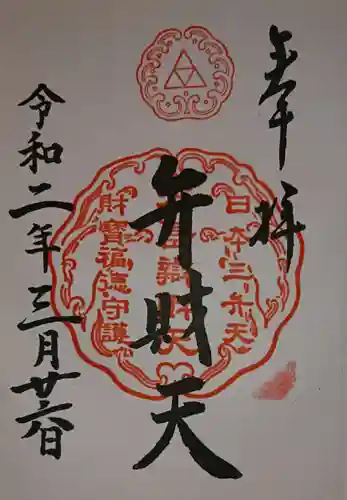 奉拝
日本三弁天
弁財天
財寶福徳守護
令和二年三月廿六日